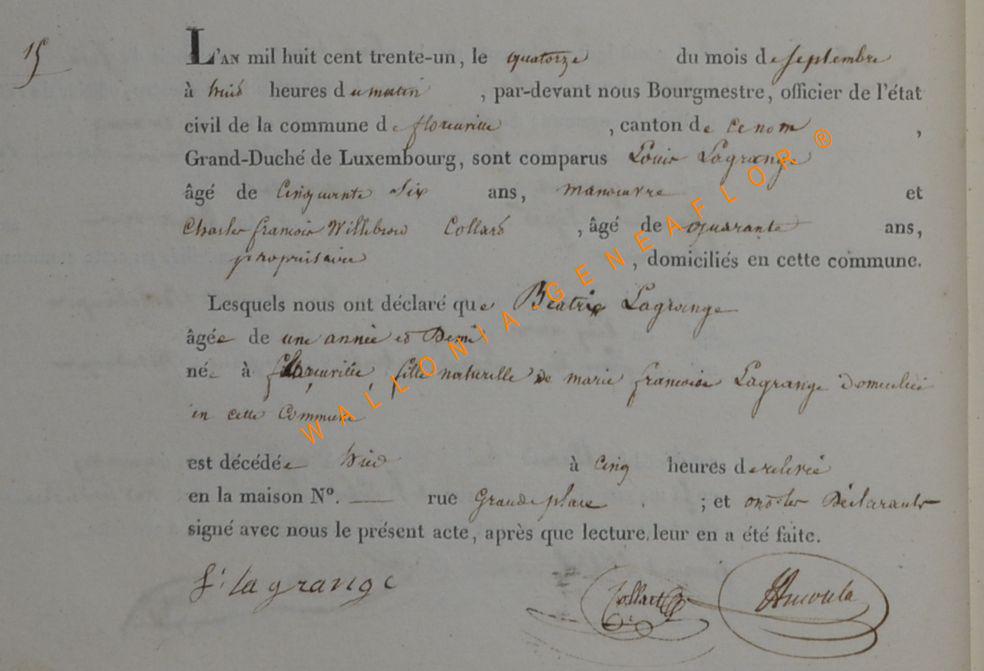 15
L'AN mil huit cent trente-un, le quatorze du mois de septembre
à huit heures du matin , par-devant nous Bourgmestre, officier de l'état
civil de la commune de florenville , canton de ce nom ,
Grand-Duché de Luxembourg, sont comparus Louis Lagrange
âgé de Cinquante Six ans, manoeuvre et
Charles francois Willibrord Collard , âgé de quarante ans,
propriétaire , domiciliés en cette commune.
Lesquels nous ont déclaré que Béatrix Lagrange
âgée de une année et Demi
née à florenville, fille naturelle de marie francoise Lagrange Domiciliée
en cette Commune
est décédée hier à cinq heures de relevée
en la maison N°. — rue Grande place . ; et ont les Déclarants
signé avec nous le présent acte, après que lecture leur en a été faite.
lagrange Collart
WALLONIA GENEAFLOR ®